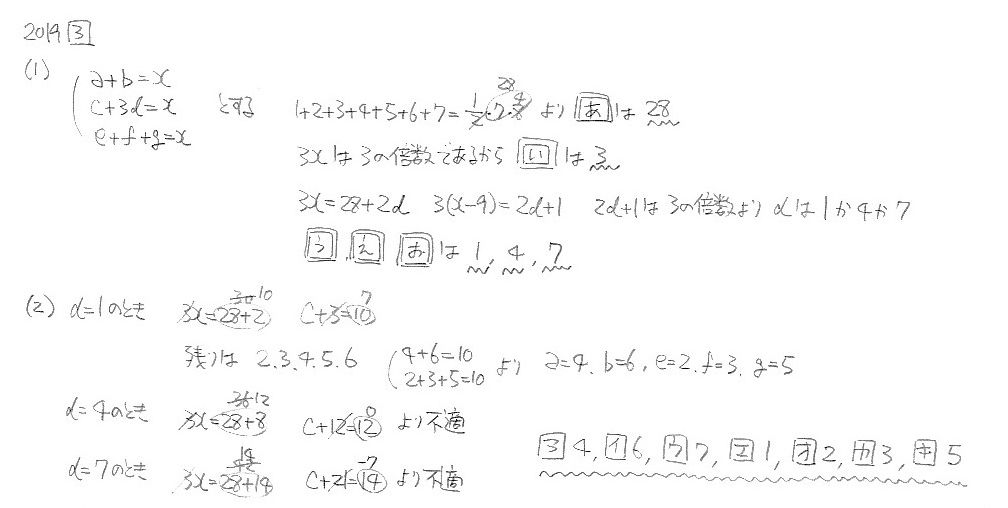 2019 3
(1)
a+b=x
c+3d=x
e+f+g=x
とする 1+2+3+4+5+6+7=1/2・7・8 28 4 より あ は 28
3xは3の倍数であるから い は 3
3x=28+2d 3(x-9)=2d+1 2d+1は3の倍数より dは1か4か7
う え お は 1, 4, 7
(2) d=1のとき 3x=28+2 30 10 c+3=10 7
残りは 2.3.4.5.6 4+6=10
2+3+5=10 より a=4、b=6, e=2、f=3、g=5
d=4のとき 3x=28+8 36 12 c+12=12 0 より不適
d=7のとき 3x=28+14 42 14 c+21=14 -7 より不適
ア 4, イ 6, ウ 7, エ 1, オ 2, カ 3, キ 5